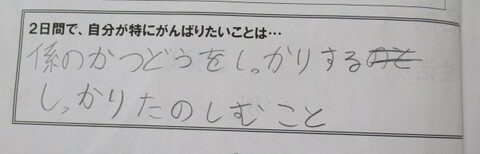 2日間で、自分が特にがんばりたいことは…
係のかつどうをしっかりする
しっかりたのしむこと